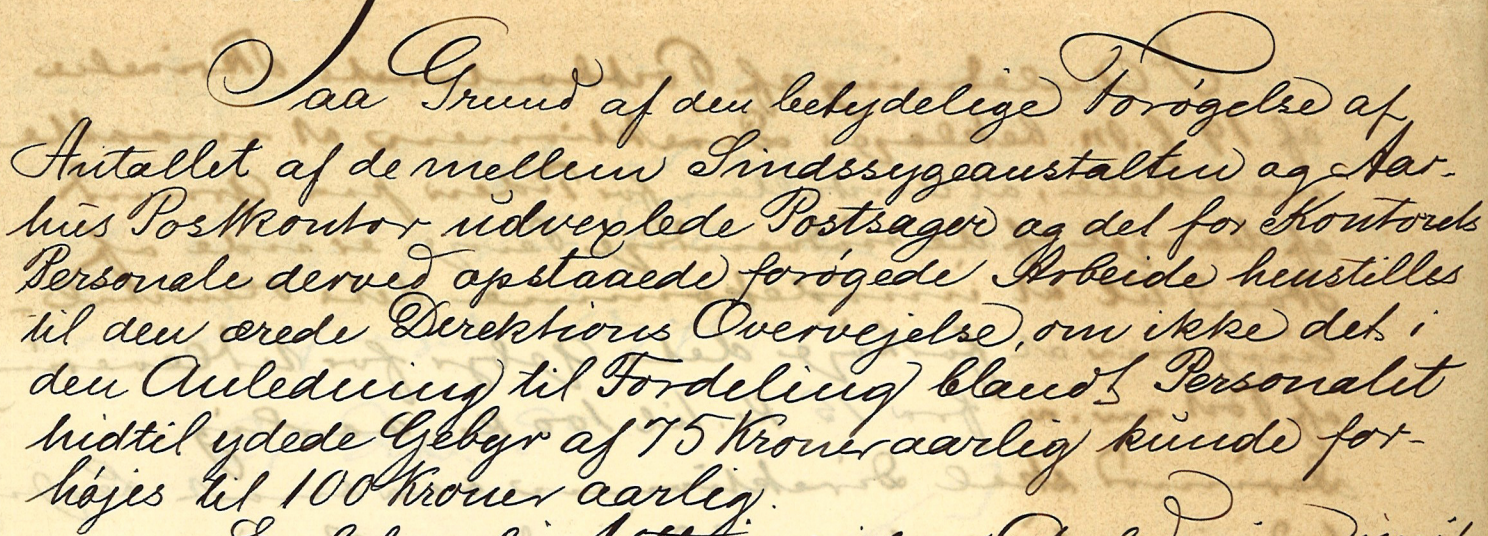 Paa Grund af den betydelige Forøgelse af
Antallet af de mellem Sindssygeanstalten og Aar-
hus Postkontor udvexlede Postsager og det for Kontorets
Personale derved opstaaede forøgede Arbeide henstilles
til den ærede Direktions Overvejelse, om ikke det i
den Anledning til Fordeling blandt Personalet
hidtil ydede Gebyr af 75 Kroner aarlig kunde for-
højes til 100 Kroner aarlig.